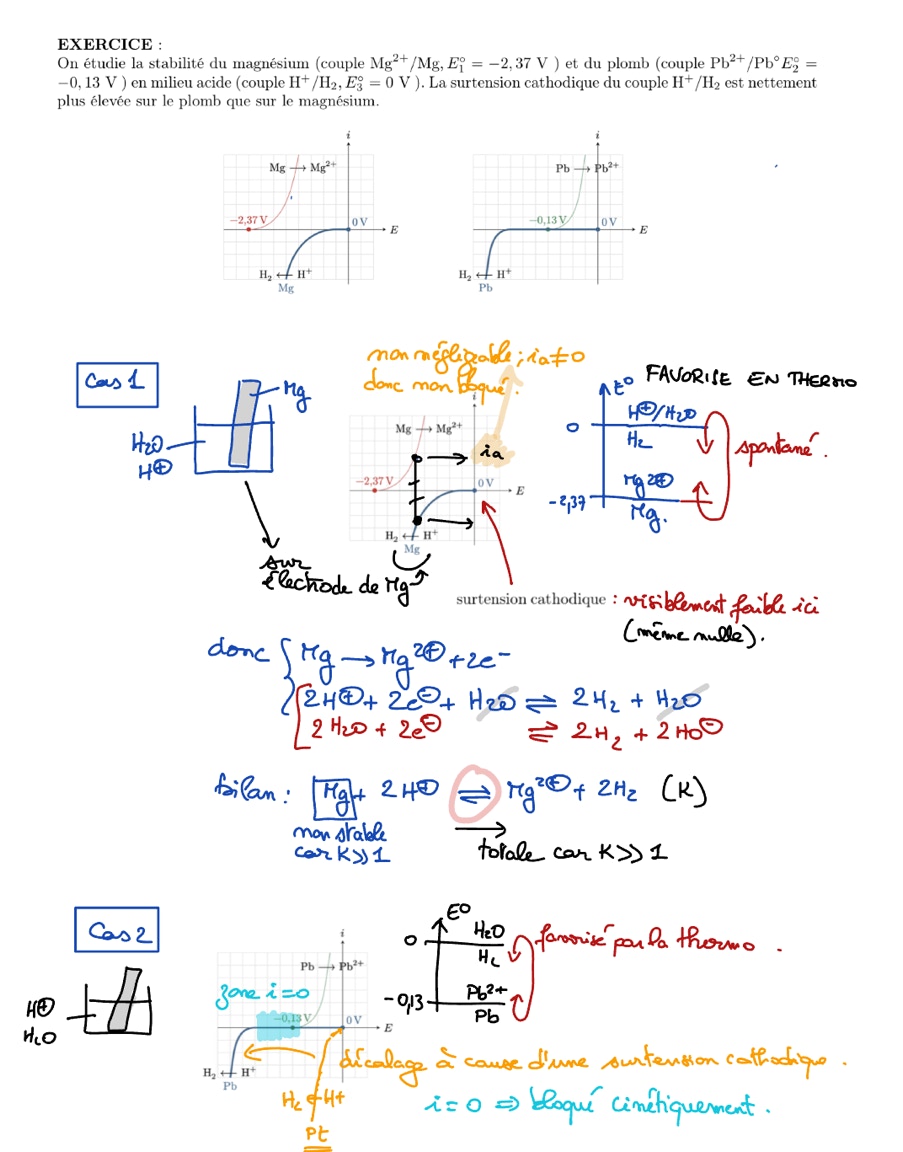 EXERCICE :
On étudie la stabilité du magnésium (couple Mg²⁺/Mg, E₁° = −2,37 V ) et du plomb (couple Pb²⁺/Pb°E₂° =
−0,13 V ) en milieu acide (couple H⁺/H₂, E₃° = 0 V ). La surtension cathodique du couple H⁺/H₂ est nettement
plus élevée sur le plomb que sur le magnésium.
i
Mg → Mg²⁺
−2,37 V
0 V
E
H₂ ← H⁺
Mg
i
Pb → Pb²⁺
−0,13 V
0 V
E
H₂ ← H⁺
Pb
Cas 1
Mg
H2O
H⊕
sur
électrode de Mg
non négligeable ; ia ≠ 0
donc non bloqué.
i
Mg → Mg²⁺
ia
−2,37 V
0 V
E
H₂ ← H⁺
Mg
E° FAVORISE EN THERMO
0
H⊕/H2O
H2
Mg2⊕
-2,37
Mg.
spontané.
surtension cathodique : visiblement faible ici
(même nulle).
donc { Mg → Mg2⊕ + 2e-
2H⊕ + 2e⊖ + H2O ⇌ 2H2 + H2O
2 H2O + 2e⊖ ⇌ 2H2 + 2HO⊖
bilan : Mg + 2H⊕ ⇌ Mg2⊕ + 2H2 (K)
non stable
car K≫1
→
totale car K≫1
Cas 2
H⊕
H2O
i
Pb → Pb²⁺
zone i=0
−0,13 V
0 V
E
H₂ ← H⁺
Pb
H2 ← H+
Pt
E°
0
H2O
H2
-0,13
Pb2+
Pb
favorisé par la thermo .
décalage à cause d'une surtension cathodique .
i = 0 ⇒ bloqué cinétiquement .